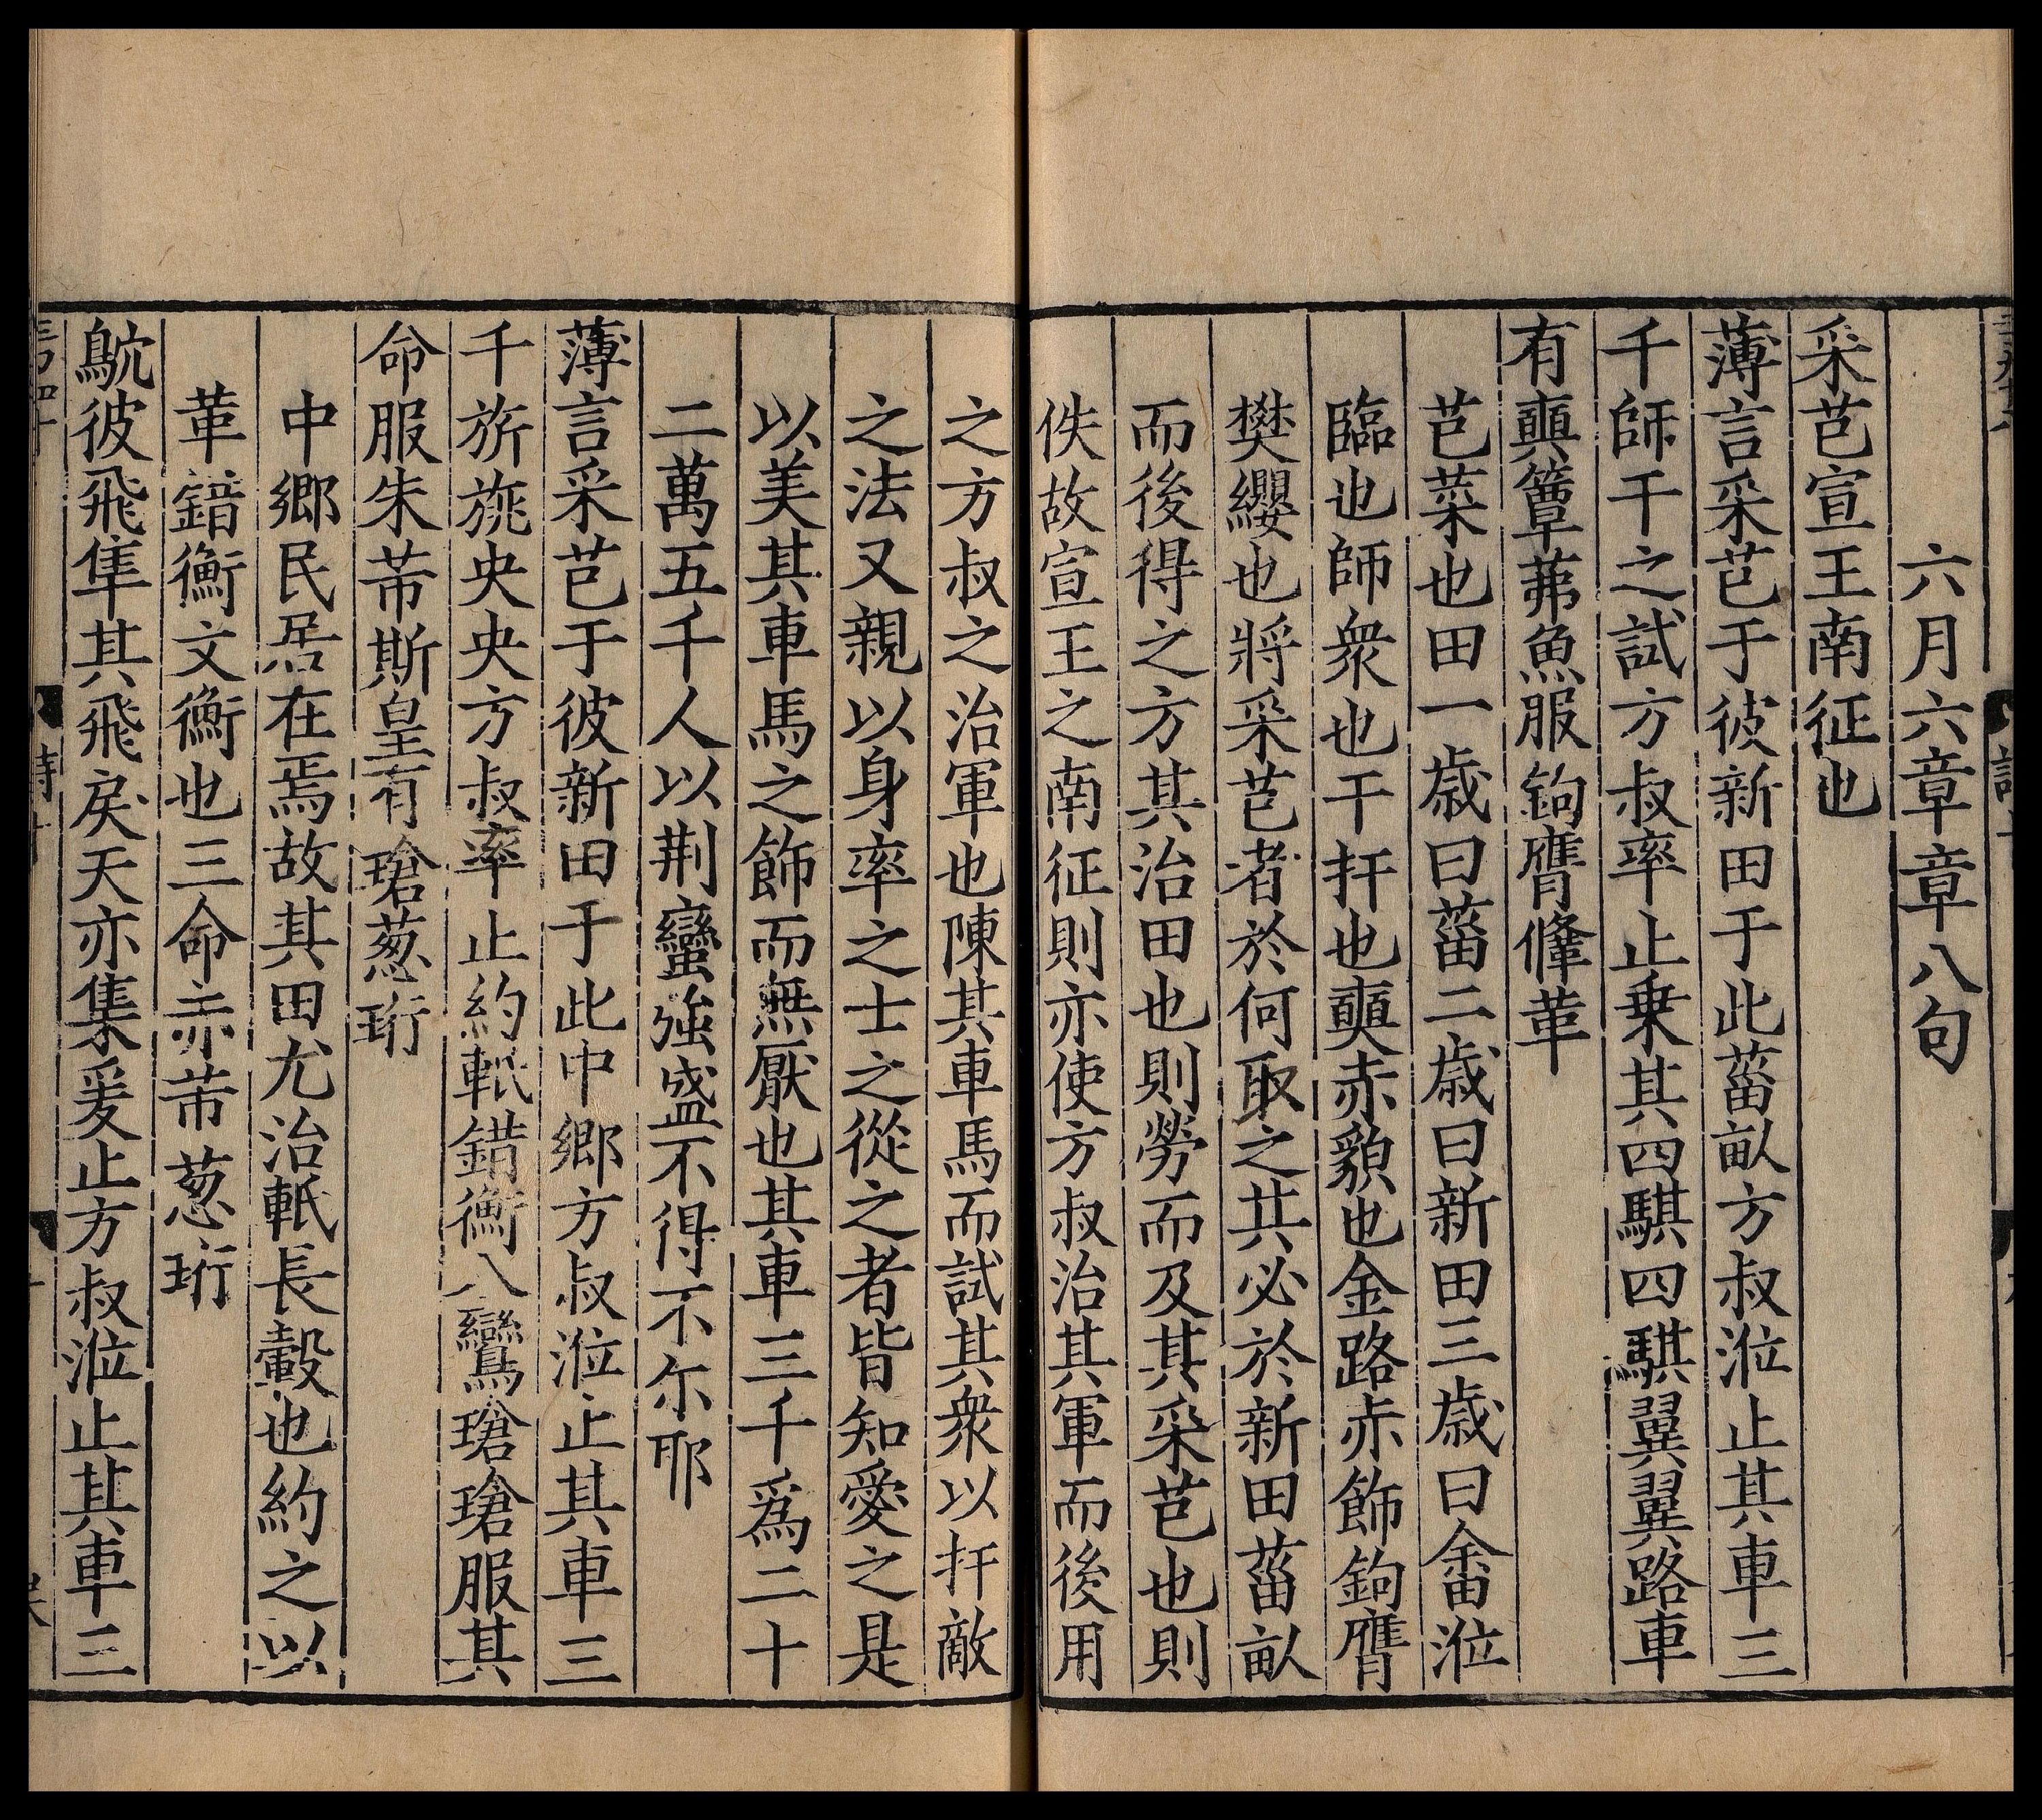 六月六章章八句
采芑宣王南征也
薄言采芑于彼新田于此菑畝方叔涖止其車三
千師干之試方叔率止乗其四騏四騏翼翼路車
有奭簟茀魚服鉤膺鞗革
芑菜也田一歳曰菑二歳曰新田三歳曰畬涖
臨也師衆也干扞也奭赤貌也金路赤飾鉤膺
樊纓也將采芑者於何取之其必於新田菑畝
而後得之方其治田也則勞而及其采芑也則
佚故宣王之南征則亦使方叔治其軍而後用
之方叔之治軍也陳其車馬而試其衆以扞敵
之法又親以身率之士之從之者皆知愛之是
以美其車馬之飾而無厭也其車三千爲二十
二萬五千人以荆蠻強盛不得不尔耶
薄言采芑于彼新田于此中鄉方叔涖止其車三
千旂旐央央方叔率止約軝錯衡八鸞瑲瑲服其
命服朱芾斯皇有瑲葱珩
中鄉民居在焉故其田尤治軝長轂也約之以
革錯衡文衡也三命赤芾葱珩
鴥彼飛隼其飛戾天亦集爰止方叔涖止其車三